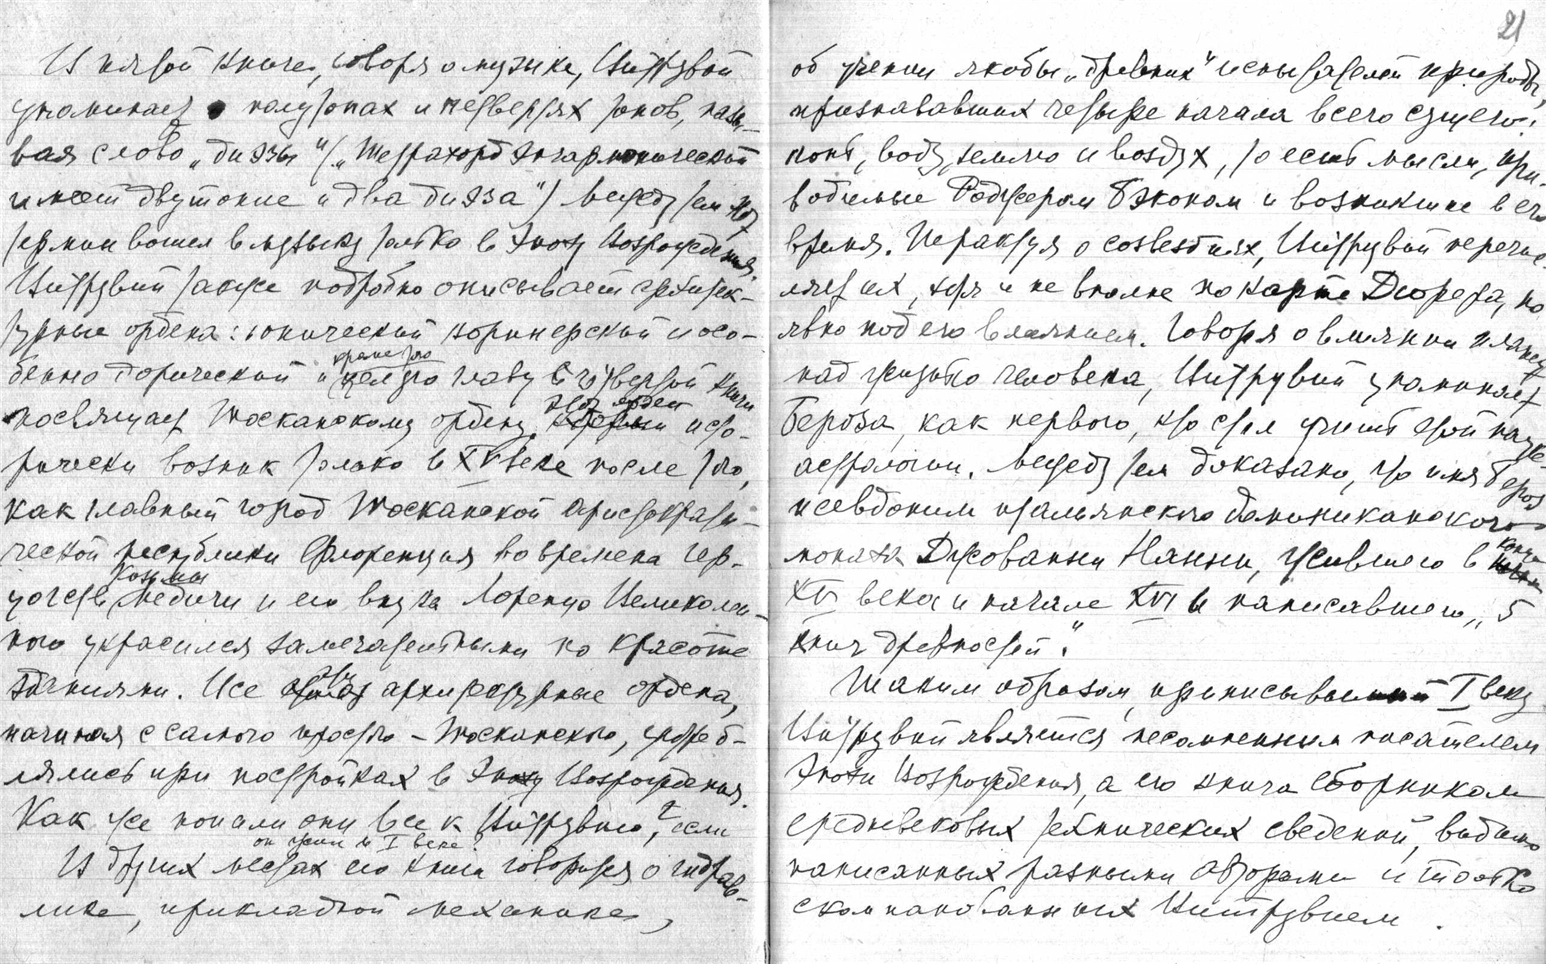 В пятой книге, говоря о музыке, Витрувий
упоминает о полутонах и четвертях тонов, назы-
вая слово „диэзы" /„Тетрахорд энгармонический
имеет двутоние и два диэза"/ между тем этот
термин вошел в музыку только в Эпоху Возрождения.
Витрувий также подробно описывает архитек-
турные ордена: ионический коринфский и осо-
бенно дорический и кроме того целую главу в четвертой книге
посвящает Тосканскому ордену. Этот орден исто-
рически возник только в XV веке после того,
как главный город Тосканской аристократи-
ческой республики Флоренция во времена гер-
цогств Козьмы Медичи и его внука Лоренцо Великолеп-
ного украсился замечательными по красоте
зданиями. Все эти архитектурные ордена,
начиная с самого простого – Тосканского, употреб-
лялись при постройках в Эпоху Возрождения.
Как же попали они все к Витрувию, если
он жил в I веке?
В других местах его книги говорится о гидрав-
лике, прикладной механике,
21
об учении якобы „древних" испытателей природы,
признававших четыре начала всего сущего:
огонь, воду, землю и воздух, то есть мысли, при-
водимые Роджером Бэконом и возникшие в его
время. Трактуя о созвездиях, Витрувий перечис-
ляет их, хотя и не вполне по карте Дюрера, но
явно под его влиянием. Говоря о влиянии планет
над жизнью человека, Витрувий упоминает
Бероза, как первого, кто стал учить этой науке –
астрологии. Между тем доказано, что имя Бероз
псевдоним итальянского доминиканского
монаха Джованни Нанни, жившего в конце
XV века и начале XVI и написавшего „5
книг древностей".
Таким образом, приписываемый I веку
Витрувий является несомненным писателем
Эпохи Возрождения, а его книга сборником
средневековых технических сведений, видимо
написанных разными авторами и только
скомпанованных Витрувием.